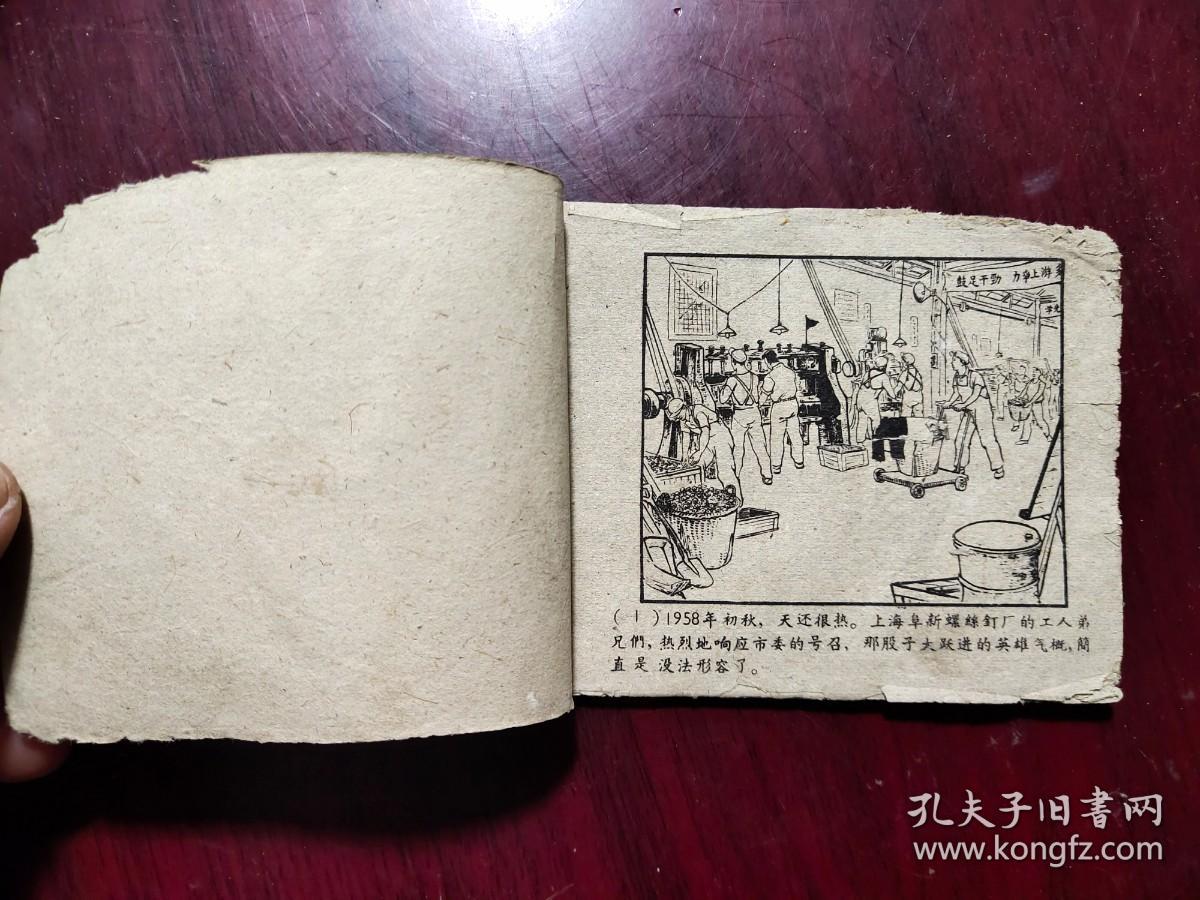 鼓足干勁 力爭上游 多
(1)1958年初秋，天还很热。上海阜新螺絲釘厂的工人弟
兄們，热烈地响应市委的号召，那股子大跃进的英雄气概，簡
直是没法形容了。
孔夫子旧書网
www.kongfz.com